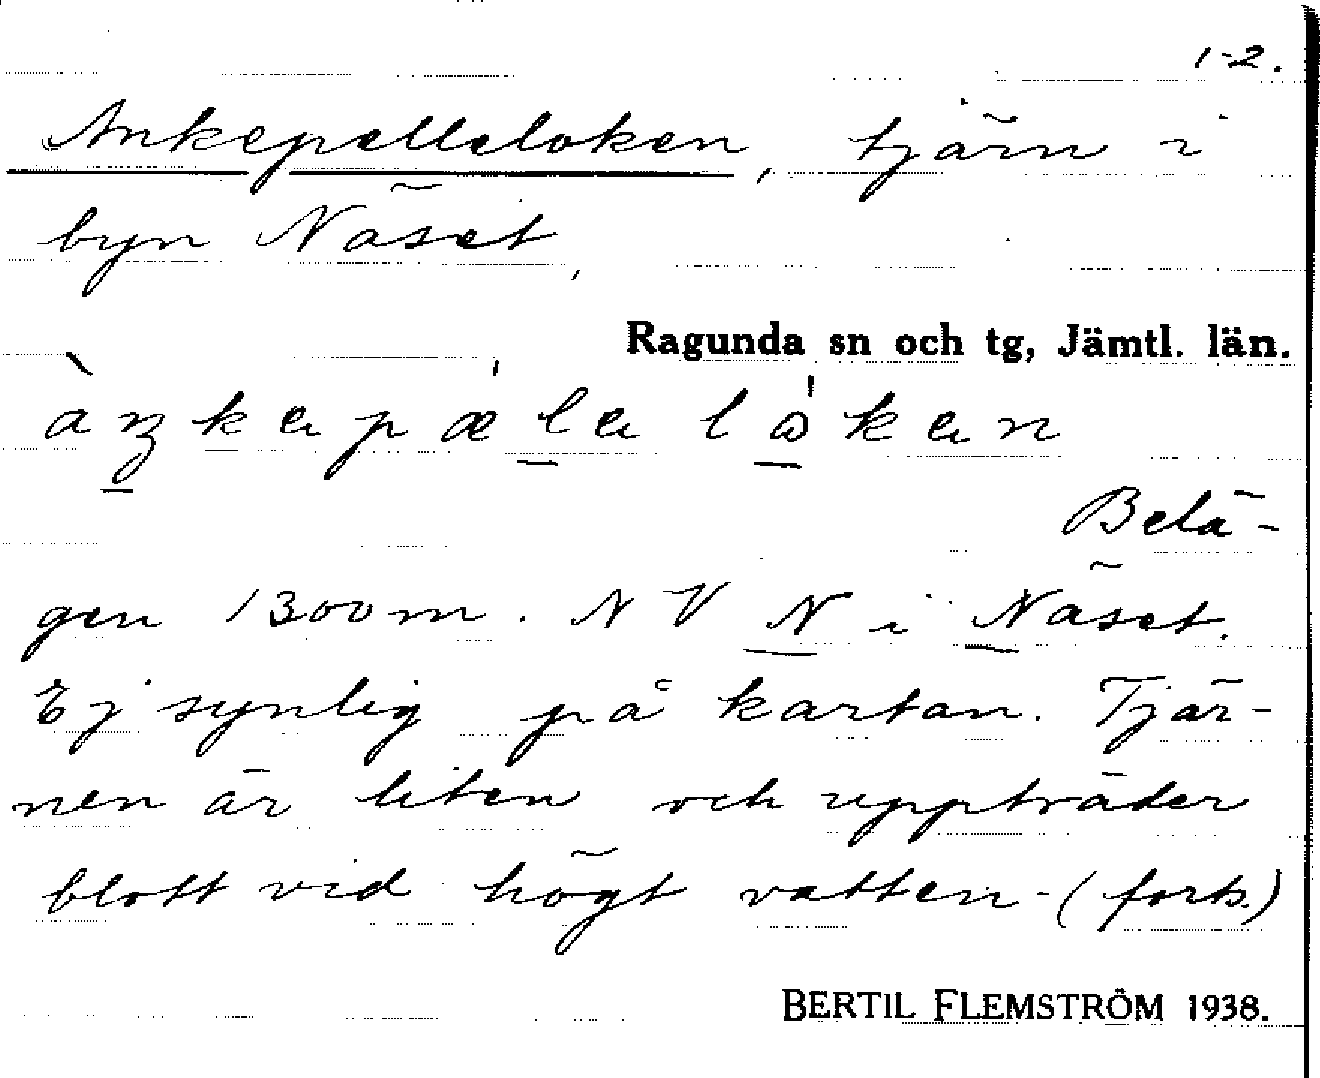 1-2.
Ankepelleloken, tjärn i
byn Näset,
Ragunda sn och tg, Jämtl. län.
Belä-
gen 1300 m. N V N i Näset.
Ej synlig på kartan. Tjär-
nen är liten och uppträder
blott vid högt vatten- (forts.)
BERTIL FLEMSTRÖM 1938.